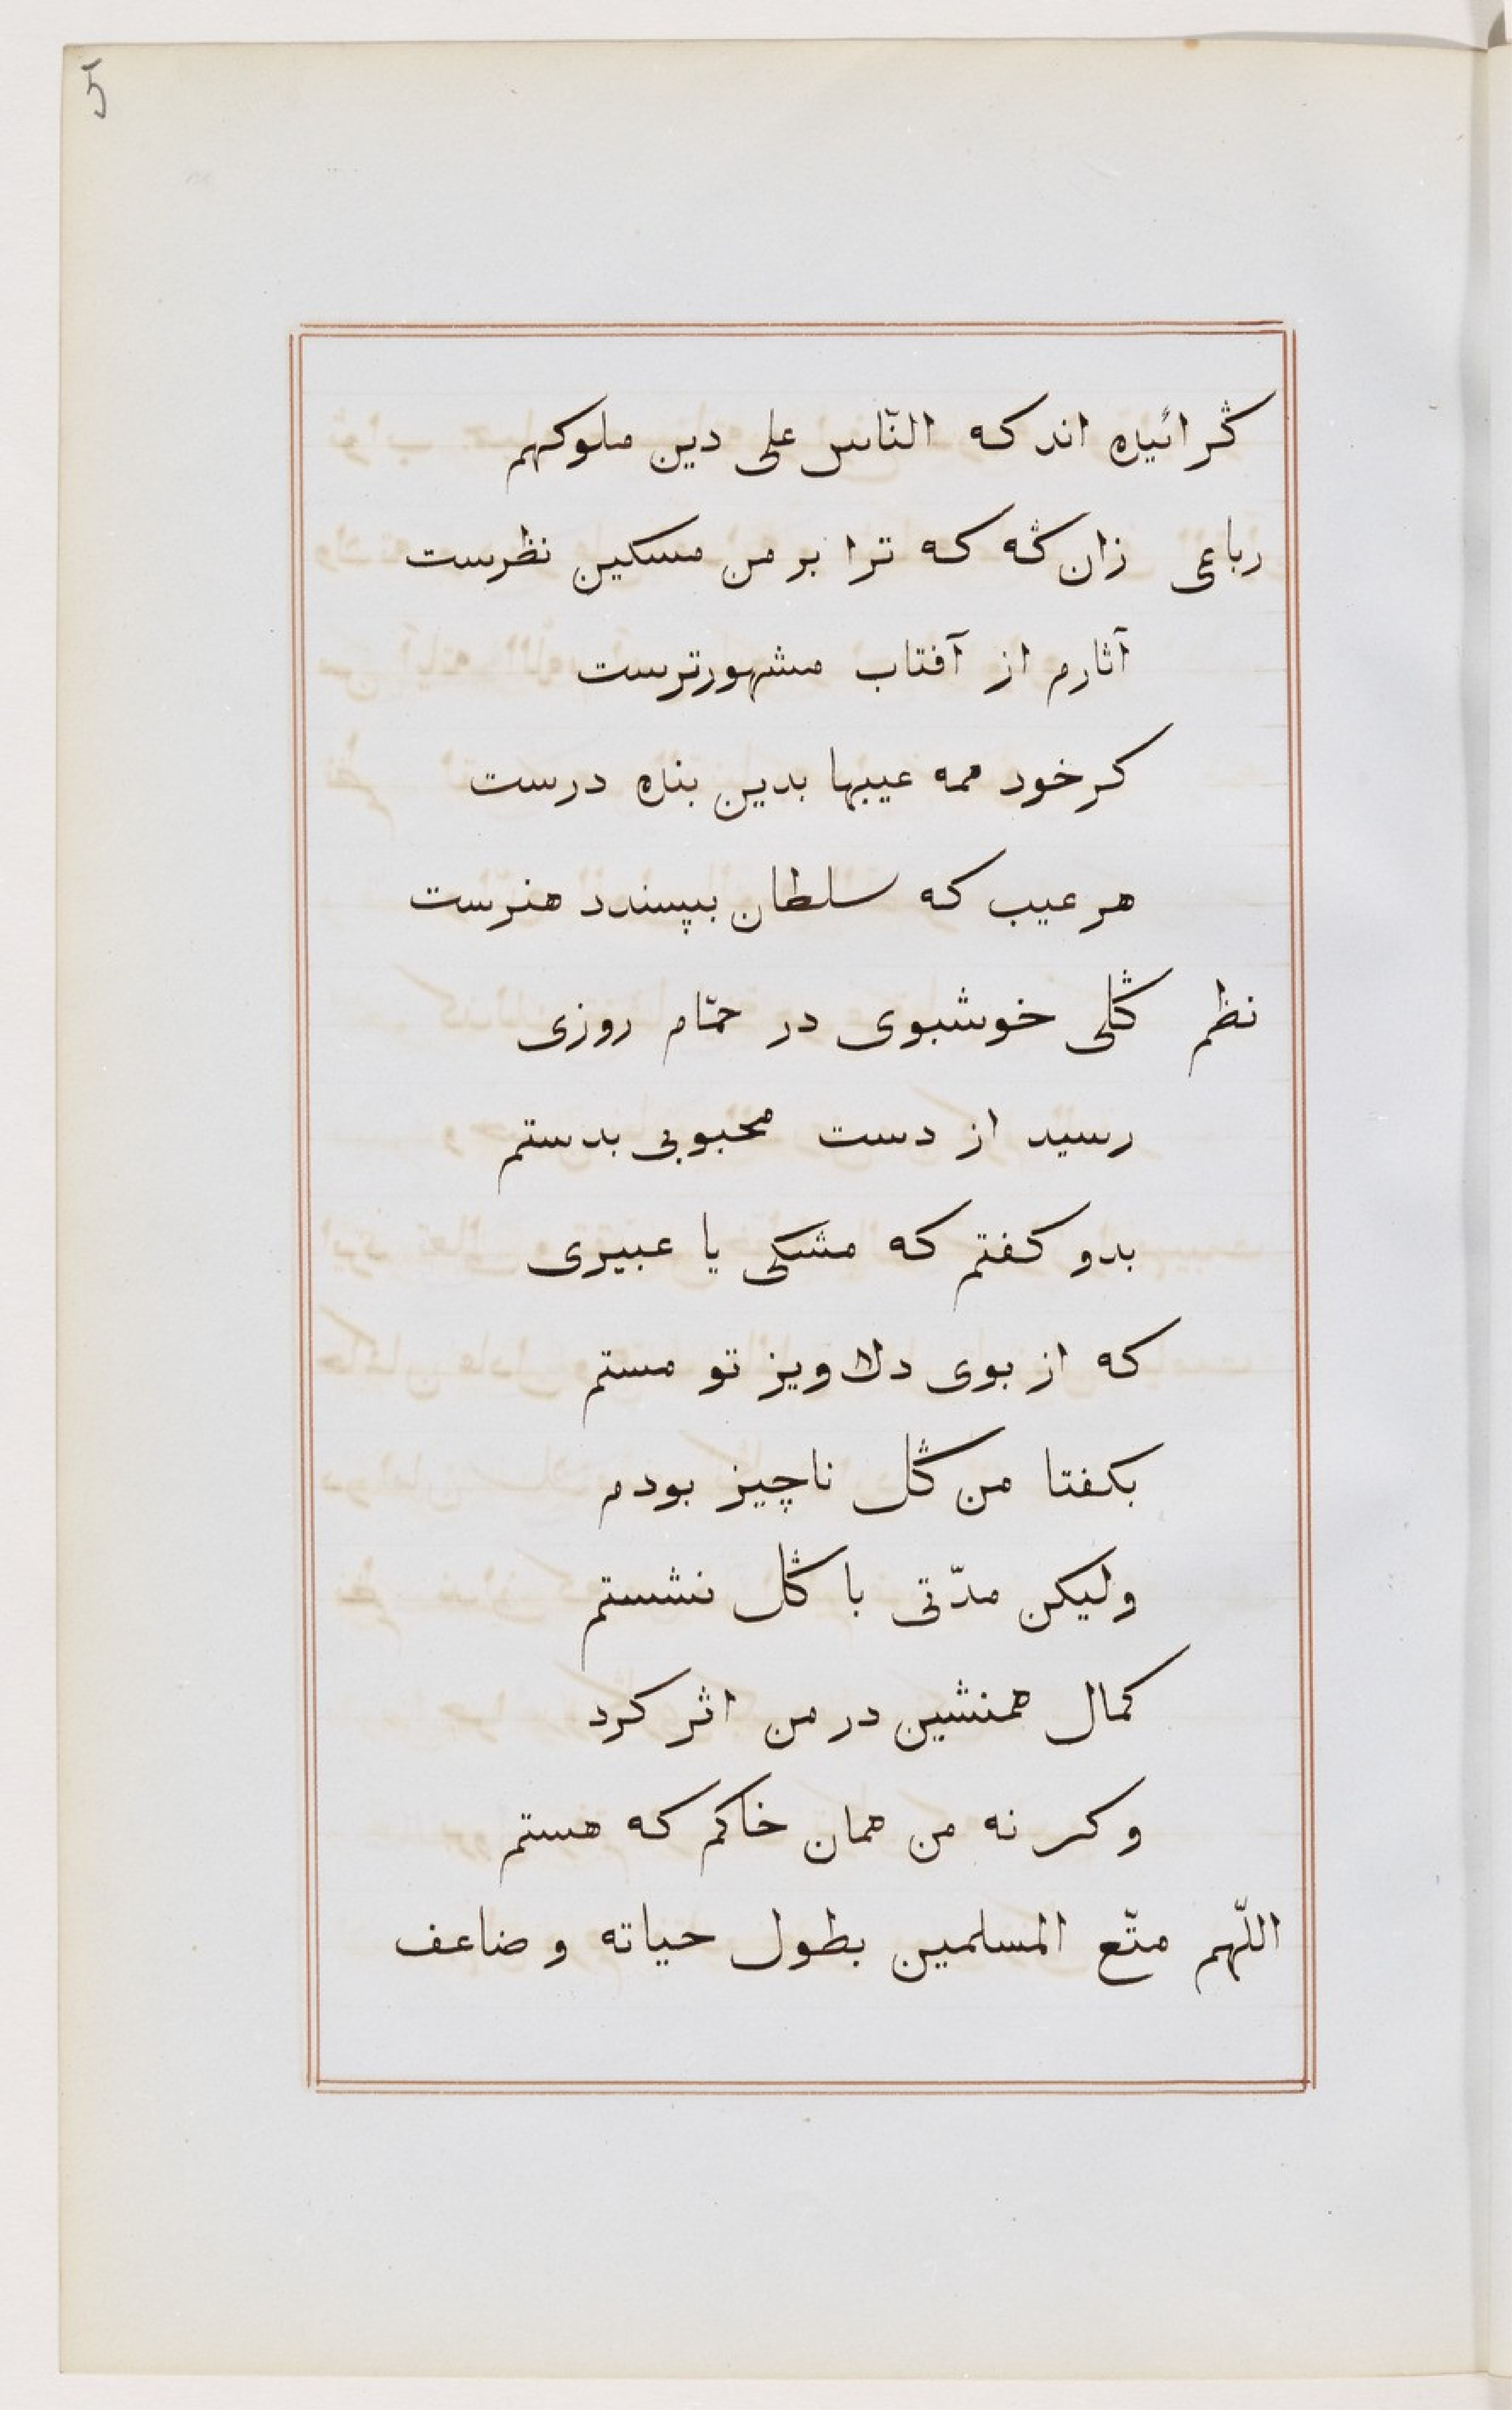 5
گرائیده اند که النّاس علی دین ملوکهم
رباعی زان گه که ترا بر من مسکین نظرست
آثارم از آفتاب مشهورترست
کر خود همه عیبها بدین بنده درست
هر عیب که سلطان بپسندد هنرست
نظم گلی خوشبوی در حمّام روزی
رسید از دست محبوبی بدستم
بدو کفتم که مشکی یا عبیری
که از بوی دلاویز تو مستم
بکفتا من گل ناچیز بودم
ولیکن مدّتی با گل نشستم
کمال همنشین در من اثر کرد
وکرنه من همان خاکم که هستم
اللّهم متّع المسلمین بطول حیاته و ضاعف